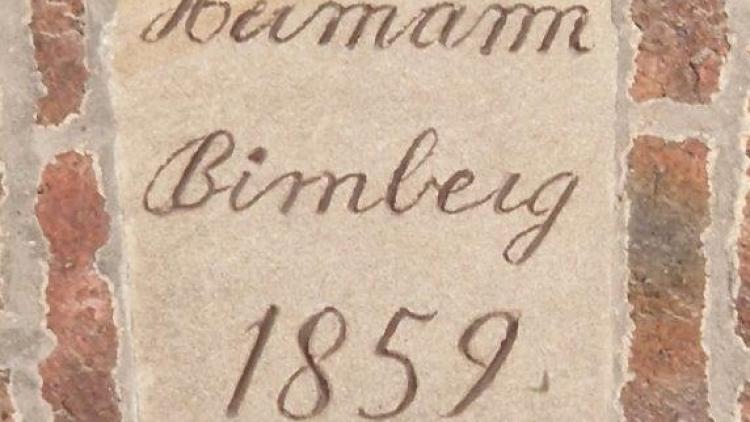 Hermann
Bimberg
1859.